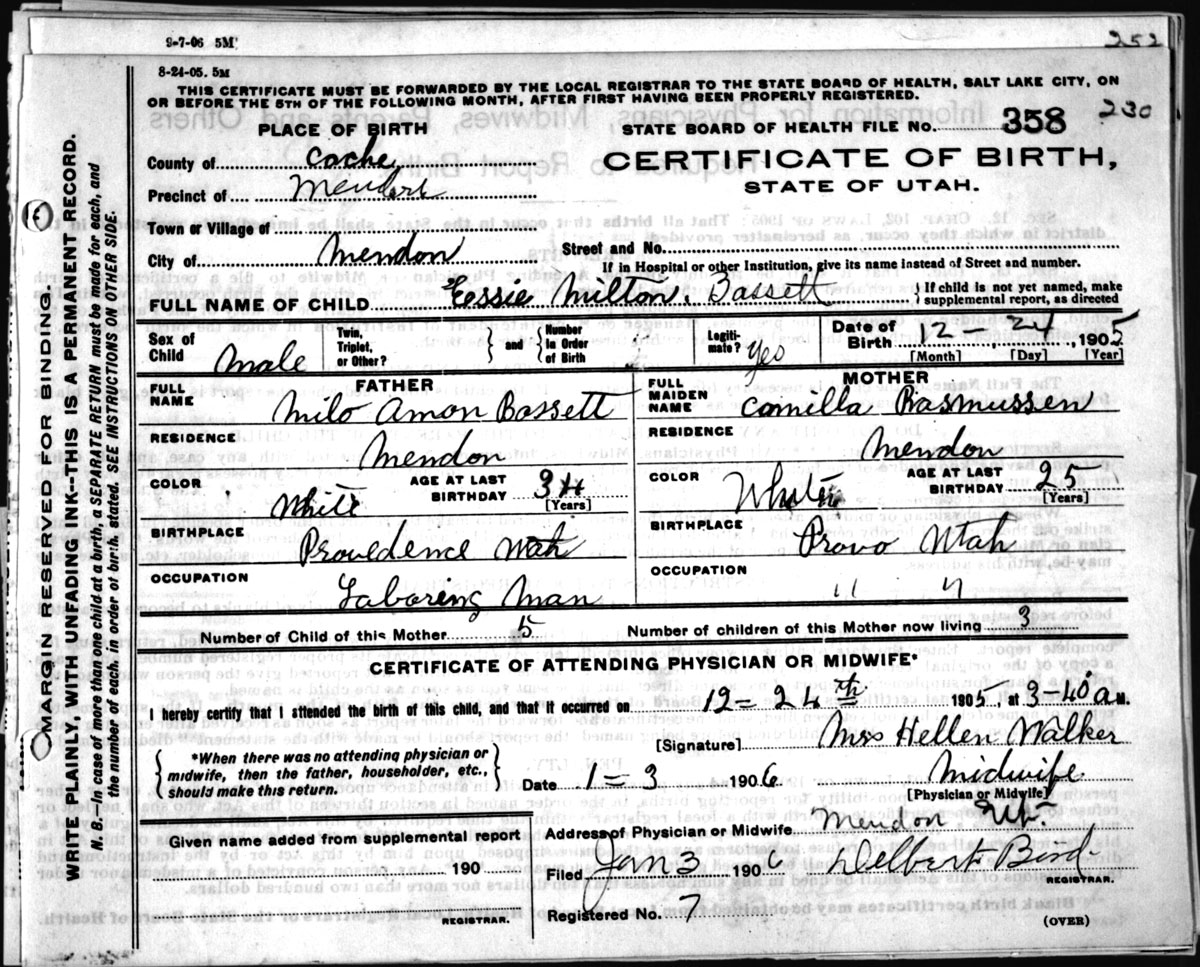 9-7-06 5M
252
8-24-05. 5M
THIS CERTIFICATE MUST BE FORWARDED BY THE LOCAL REGISTRAR TO THE STATE BOARD OF HEALTH, SALT LAKE CITY, ON
OR BEFORE THE 5TH OF THE FOLLOWING MONTH, AFTER FIRST HAVING BEEN PROPERLY REGISTERED.
230
PLACE OF BIRTH
STATE BOARD OF HEALTH FILE NO. 358
County of Cache
CERTIFICATE OF BIRTH,
Precinct of Mendon
STATE OF UTAH.
Town or Village of
City of Mendon Street and No.
If in Hospital or other Institution, give its name instead of Street and number.
FULL NAME OF CHILD Essie Milton. Bassett { If child is not yet named, make supplemental report, as directed
Sex of Child Male Twin, Triplet, or Other? { and { Number in Order of Birth Legiti-mate? Yes Date of Birth 12-24, 1905
[Month] [Day] [Year]
FATHER
MOTHER
FULL NAME Milo Amon Bassett
FULL MAIDEN NAME Camilla Rasmussen
RESIDENCE Mendon
RESIDENCE Mendon
COLOR White AGE AT LAST BIRTHDAY 34 [Years]
COLOR White AGE AT LAST BIRTHDAY 25 [Years]
BIRTHPLACE Providence Utah
BIRTHPLACE Provo Utah
OCCUPATION Laboring Man
OCCUPATION " "
Number of Child of this Mother 5 Number of children of this Mother now living 3
CERTIFICATE OF ATTENDING PHYSICIAN OR MIDWIFE*
I hereby certify that I attended the birth of this child, and that it occurred on 12=24th 1905, at 3-40 a M.
[Signature] Mrs Hellen Walker
{ *When there was no attending physician or midwife, then the father, householder, etc., should make this return. }
Date 1=3 1906. Midwife
[Physician or Midwife]
Given name added from supplemental report
190
REGISTRAR.
Address of Physician or Midwife Mendon Ut.
Filed Jan 3 1906 Delbert Bird
REGISTRAR.
Registered No. 7
(OVER)
MARGIN RESERVED FOR BINDING.
WRITE PLAINLY, WITH UNFADING INK--THIS IS A PERMANENT RECORD.
N. B.--In case of more than one child at a birth, a SEPARATE RETURN must be made for each, and
the number of each, in order of birth, stated. SEE INSTRUCTIONS ON OTHER SIDE.